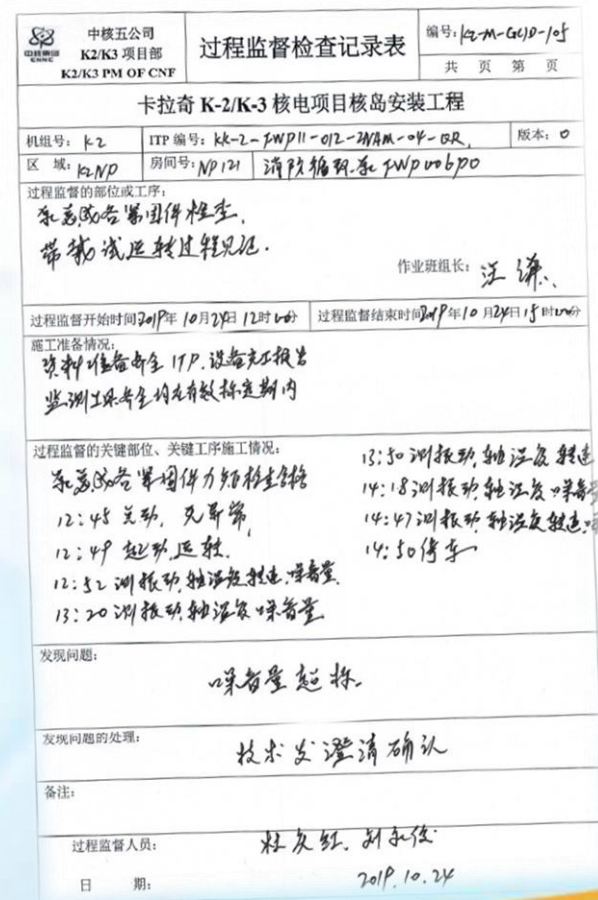 中核集团
CNNC
中核五公司
K2/K3 项目部
K2/K3 PM OF CNF
过程监督检查记录表
编号: K2-M-GCJD-105
共 页 第 页
卡拉奇 K-2/K-3 核电项目核岛安装工程
机组号: K2 ITP 编号: KK-2-JWP11-012-2NAM-04-QR 版本: 0
区 域: K2NP 房间号: NP121 消防循环泵 JWP006PO
过程监督的部位或工序:
泵总成各紧固件检查,
带载试运转过程见记.
作业班组长: 汪
过程监督开始时间2019年10月24日12时00分 过程监督结束时间2019年10月24日15时00分
施工准备情况:
资料准备齐全ITP、设备完工报告
监测工具齐全均在有效标定期内
过程监督的关键部位、关键工序施工情况:
泵总成各紧固件力矩检查合格
12:45 点动, 无异常,
12:49 起动运转.
12:52 测振动,轴温度,转速,噪音量.
13:20 测振动,轴温度,噪音量
13:50测振动,轴温度转速
14:18测振动,轴温度,噪音量
14:47测振动,轴温度,转速,噪
14:50停车
发现问题:
噪音量超标.
发现问题的处理:
技术发澄清确认
备注:
过程监督人员: 杜庆红、刘永俊
日 期: 2019.10.24